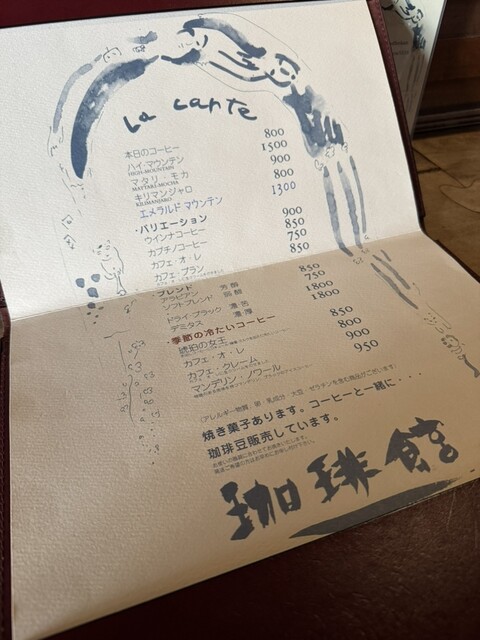 La carte
本日のコーヒー 800
ハイ・マウンテン 1500
HIGH-MOUNTAIN
マタリ・モカ 900
MATTARI-MOCHA
キリマンジャロ 800
KILIMANJARO
エメラルド マウンテン 1300
・バリエーション
ウインナコーヒー 900
カプチノコーヒー 850
カフェ・オ・レ 750
カフェ・ブラン 850
・ブレンド
アラビアン 芳醇 850
ソフトブレンド 750
ドライ・ブラック 濃苦 1800
デミタス 濃厚 1800
・季節の冷たいコーヒー
琥珀の女王 850
カフェ・オ・レ 800
カフェ・クレーム 900
マンデリン・ノワール 950
(アレルギー物質 卵 乳成分 大豆 ゼラチンを含む商品がございます)
焼き菓子あります。コーヒーと一緒に・・・
珈琲豆販売しています。
珈琲館